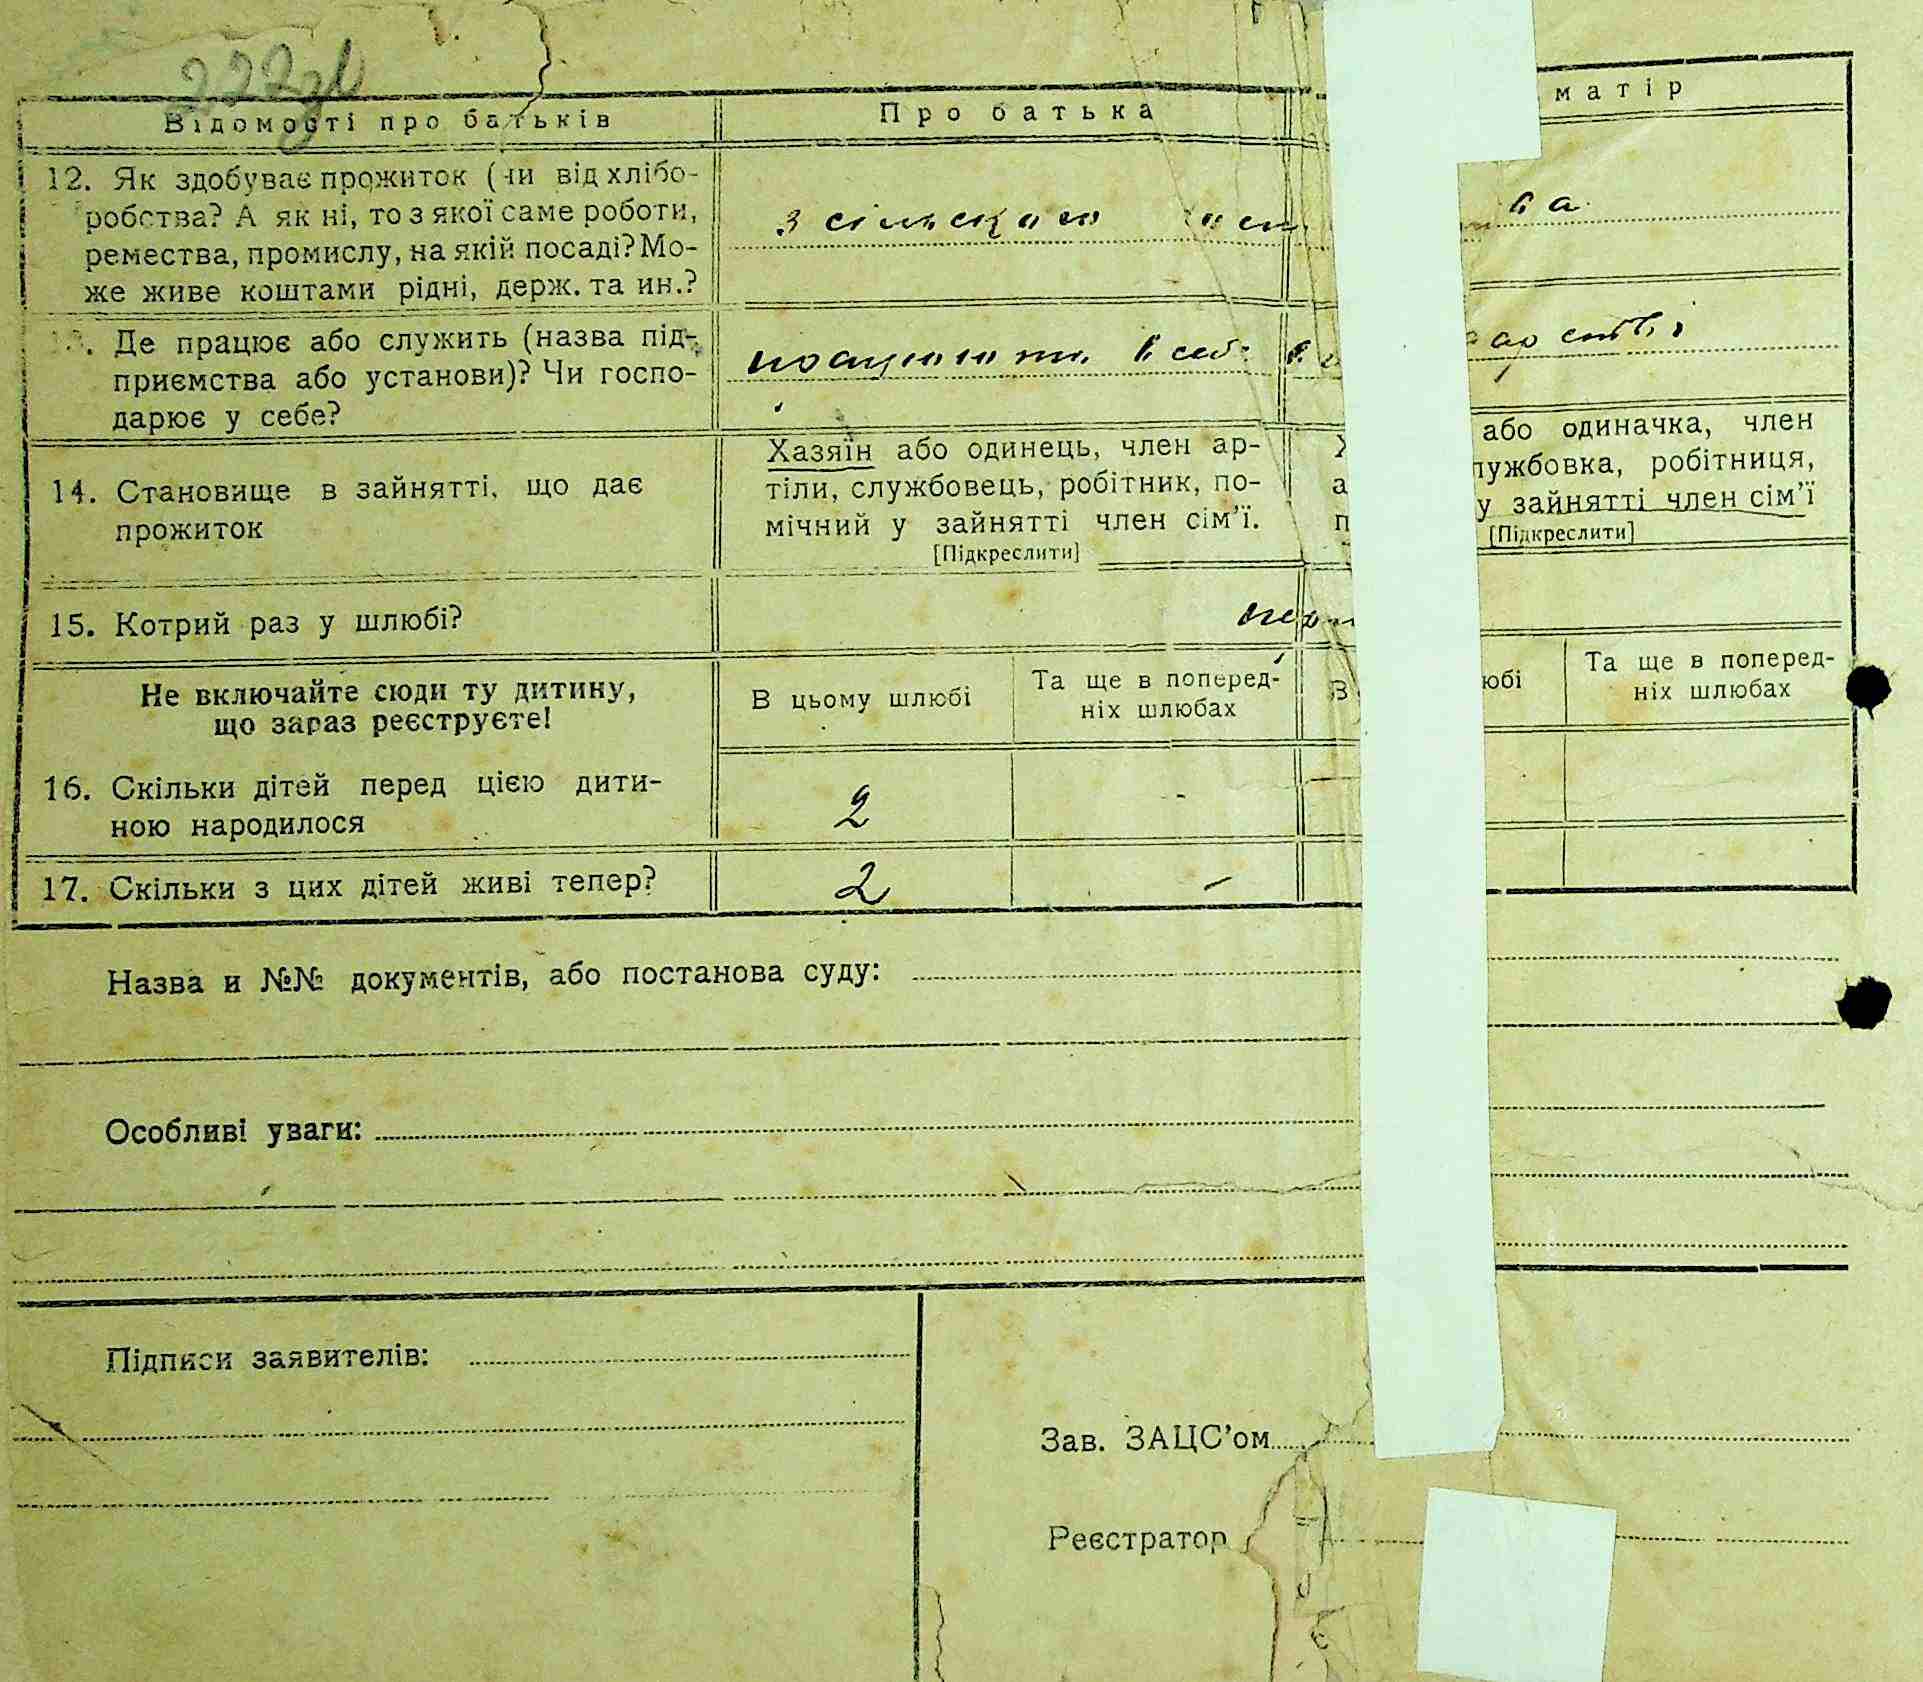 222зв
Відомості про батьків
Про батька
матір
12. Як здобуває прожиток (чи від хлібо-
робства? А як ні, то з якої саме роботи,
ремества, промислу, на якій посаді? Мо-
же живе коштами рідні, держ. та ин.?
з сільського
ва
13. Де працює або служить (назва під-
приємства або установи)? Чи госпо-
дарює у себе?
в себе
14. Становище в зайнятті, що дає
прожиток
Хазяїн або одинець, член ар-
тіли, службовець, робітник, по-
мічний у зайнятті член сім'ї.
[Підкреслити]
або одиначка, член
лужбовка, робітниця,
у зайнятті член сім'ї
[Підкреслити]
15. Котрий раз у шлюбі?
Не включайте сюди ту дитину,
що зараз реєструєте!
В цьому шлюбі
Та ще в поперед-
ніх шлюбах
В
юбі
Та ще в поперед-
ніх шлюбах
16. Скільки дітей перед цією дити-
ною народилося
2 -
17. Скільки з цих дітей живі тепер?
2 -
Назва и №№ документів, або постанова суду:
Особливі уваги:
Підписи заявителів:
Зав. ЗАЦС'ом
Реєстратор